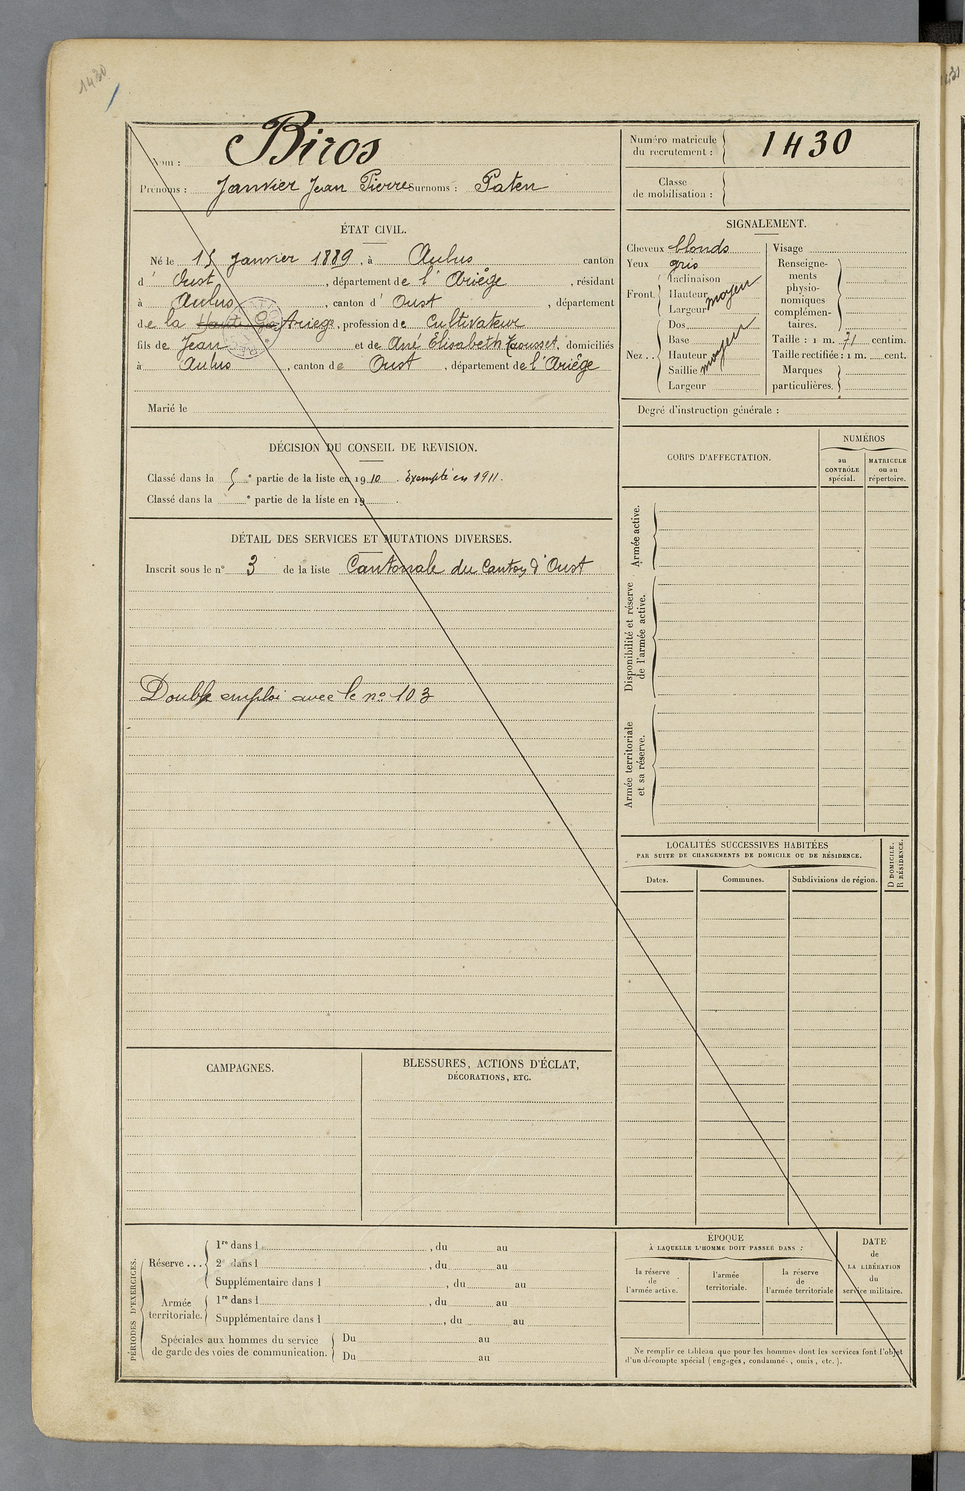 1430
Nom : Biros
Prénoms : Janvier Jean Pierre Surnoms : Paten
Numéro matricule du recrutement : 1430
Classe de mobilisation :
ÉTAT CIVIL.
Né le 15 Janvier 1889, à Aulus canton
d' Oust, département de l'Ariège, résidant
à Aulus, canton d' Oust, département
de la Haute Ga Ariege, profession de Cultivateur
fils de Jean et de Ané Elisabeth, domiciliés
à Aulus, canton de Oust, département de l'Ariège
Marié le
SIGNALEMENT.
Cheveux blonds
Yeux gris
Front. Inclinaison
Hauteur moyen
Largeur
Nez .. Dos
Base
Hauteur moyen
Saillie
Largeur
Visage
Renseigne-
ments
physio-
nomiques
complémen-
taires.
Taille : 1 m. 71 centim.
Taille rectifiée : 1 m. cent.
Marques
particulières.
Degré d'instruction générale :
DÉCISION DU CONSEIL DE REVISION.
Classé dans la 5e partie de la liste en 1910. Exempté en 1911.
Classé dans la e partie de la liste en 19 .
DÉTAIL DES SERVICES ET MUTATIONS DIVERSES.
Inscrit sous le n° 3 de la liste Cantonale du Canton d'Oust
Double emploi avec le no 103
CORPS D'AFFECTATION.
NUMÉROS
au
CONTRÔLE
spécial.
MATRICULE
ou au
répertoire.
Armée active.
Disponibilité et réserve
de l'armée active.
Armée territoriale
et sa réserve.
LOCALITÉS SUCCESSIVES HABITÉES
PAR SUITE DE CHANGEMENTS DE DOMICILE OU DE RÉSIDENCE.
Dates.
Communes.
Subdivisions de région.
D DOMICILE.
R RÉSIDENCE.
CAMPAGNES.
BLESSURES, ACTIONS D'ÉCLAT,
DÉCORATIONS, ETC.
PÉRIODES D'EXERCICES.
Réserve ... 1re dans l , du au
2e dans l , du au
Supplémentaire dans l , du au
Armée
territoriale. 1re dans l , du au
Supplémentaire dans l , du au
Spéciales aux hommes du service
de garde des voies de communication. Du au
Du au
ÉPOQUE
À LAQUELLE L'HOMME DOIT PASSER DANS :
la réserve
de
l'armée active.
l'armée
territoriale.
la réserve
de
l'armée territoriale
DATE
de
LA LIBÉRATION
du
service militaire.
Ne remplir ce tableau que pour les hommes dont les services font l'objet
d'un décompte spécial (engagés, condamnés, omis, etc.).